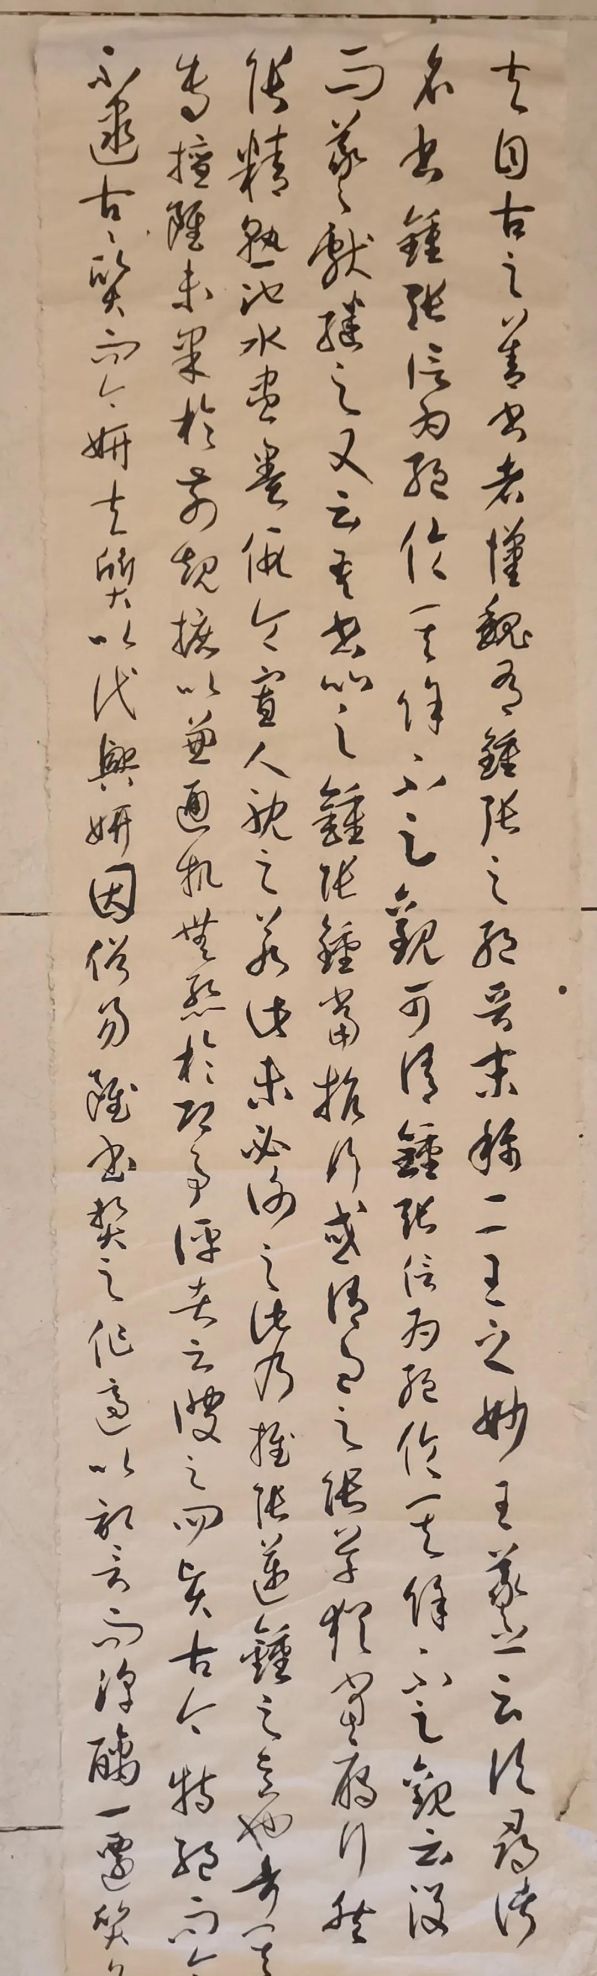 夫自古之善書者漢魏有鍾張之絕晉末稱二王之妙王羲之云頃尋諸
名書鍾張信為絕倫其餘不足觀可謂鍾張信為絕倫其餘不足觀云沒
而羲獻繼之又云吾書比之鍾張鍾當抗行或謂過之張草猶當雁行然
張精熟池水盡墨假令寡人耽之若此未必謝之此乃推張邁鍾之意也考其
專擅雖未果於前規摭以兼通故無慙於即事評者云彼之四賢古今特絕而今
不逮古古質而今妍夫質以代興妍因俗易雖書契之作適以記言而淳醨一遷質